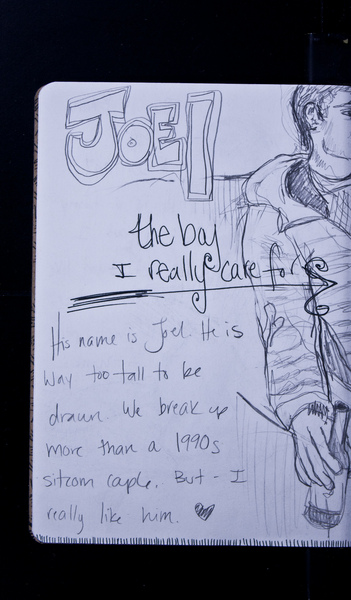 JOEl
the boy
I really care for
His name is Joel. He is
way too tall to be
drawn. We break up
more than a 1990s
sitcom cuple. But - I
really like him. ♥